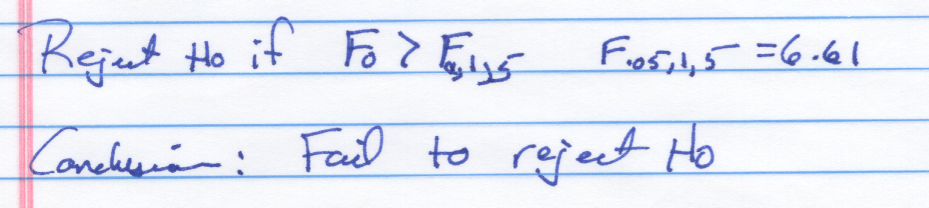 Reject Ho if Fo > Fα,1,5 F.05,1,5 = 6.61
Conclusion: Fail to reject Ho